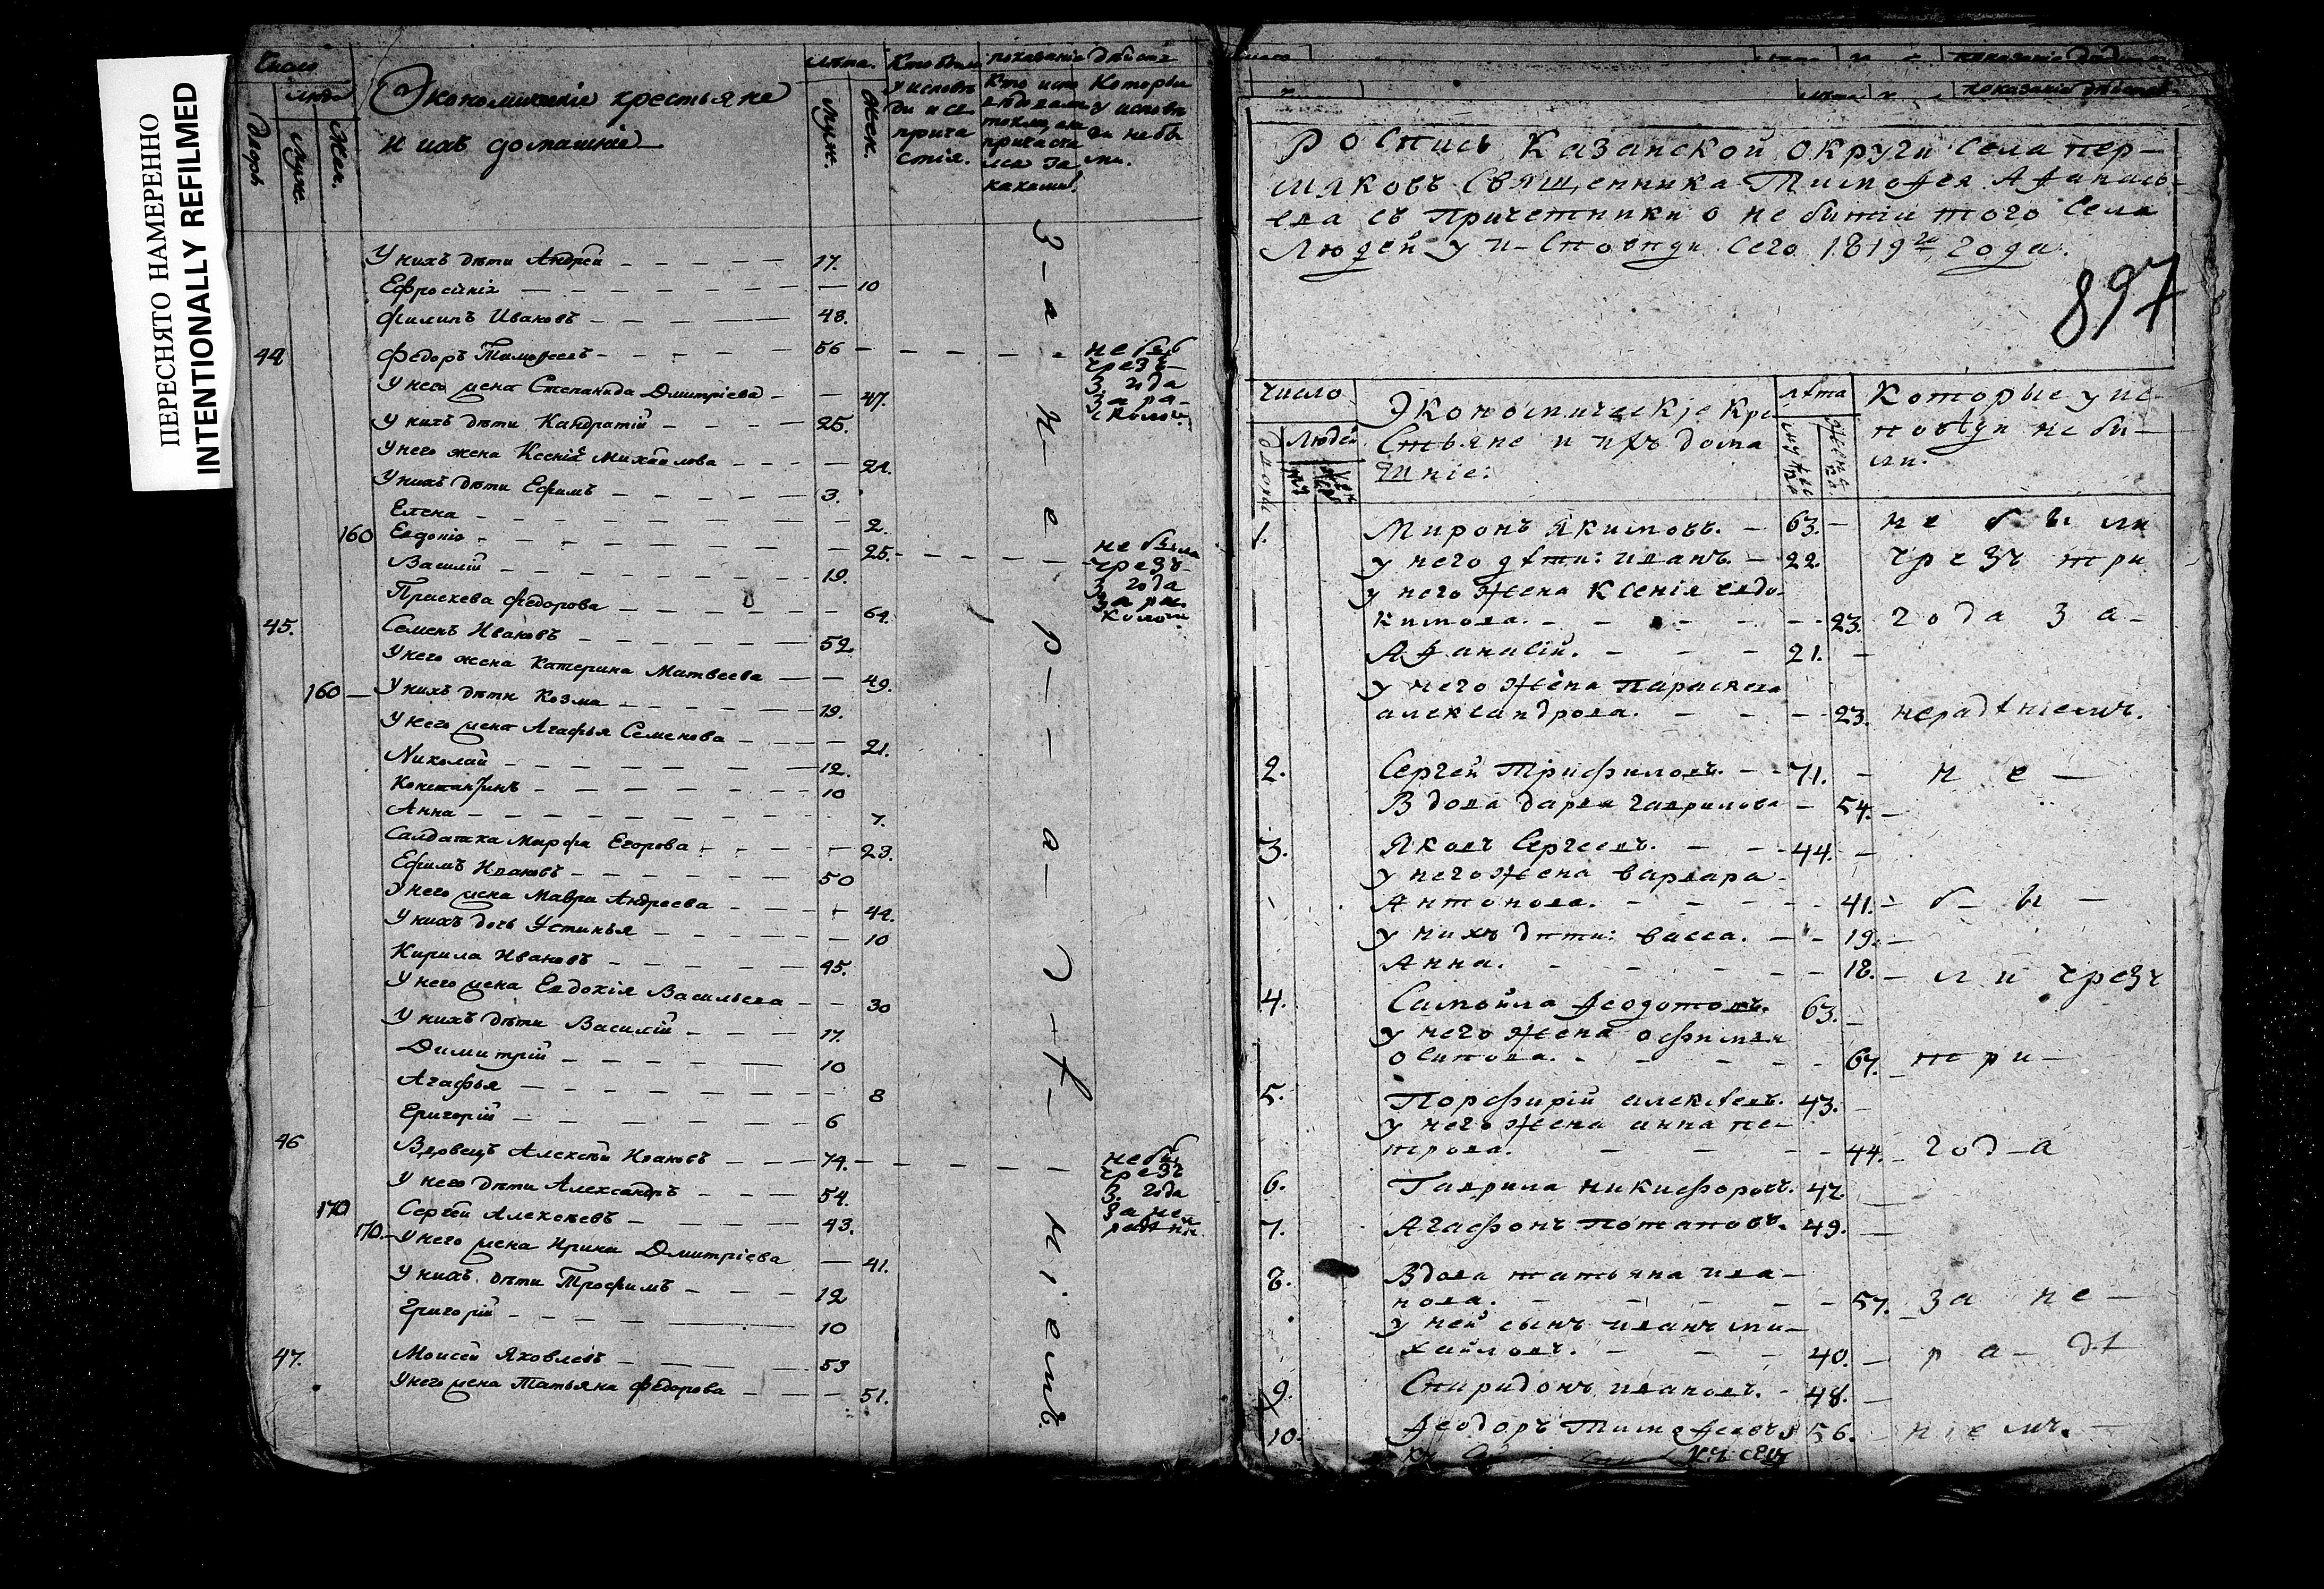 ПЕРЕСНЯТО НАМЕРЕННО
INTENTIONALLY REFILMED
Число
людей
дворовъ
муж.
жен.
Экономическіе крестьяне
и ихъ домашніе
лѣта.
муж.
жен.
Кто были
у исповѣ
ди и св.
прича
стія.
показаніе дѣйств
Кто испо
вѣдалися
токмо, а не
причасти
лся за
какими
Которые
у исповѣ
ди не бы
ли.
У нихъ дѣти Андрей 17.
Ефросиніа 10
Филипъ Ивановъ 48.
44. Федоръ Тимофеевъ 56 не былъ
чрезъ
3 года
за ра-
сколом.
У него жена Степанида Дмитріева 47.
У нихъ дѣти Кандратій 25.
У него жена Ксенія Михайлова 24.
У нихъ дѣти Ефимъ 3.
Елена 2.
160 Евдокія 25. не была
чрезъ
3 года
за ра-
сколом
Василій 19.
Праскева Федорова 64.
45. Семенъ Ивановъ 52.
У него жена Катерина Матвеева 49.
160 У нихъ дѣти Козма 19.
У него жена Агафья Семенова 21.
Николай 12.
Константинъ 10
Анна 7.
Салдатка Марфа Егорова 23.
Ефимъ Ивановъ 50
У него жена Мавра Андреева 44.
У нихъ дочь Устинья 10
Кирила Ивановъ 45.
У него жена Евдокія Васильева 30
У нихъ дѣти Василій 17.
Димитрій 10
Агафья 8
Григорій 6
46 Вдовецъ Алексѣй Ивановъ 74. не бы
чрезъ
3. года
за не
радѣні
У него дѣти Александръ 54.
170 Сергѣй Алексѣевъ 43.
170. У него жена Ирина Дмитріева 41.
У нихъ дѣти Трофимъ 12
Григорій 10
47. Моисей Яковлевъ 53
У него жена Татьяна Федорова 51.
З-а-н-е-р-а-д-ѣ-н-і-емъ.
показаніе дѣйств
Роспись Казанской округи села Пер-
мяковъ священника Тимофея Афанась-
ева съ причетники о небытіи того села
людей у и-споведи сего 1819го года.
897
число
людей
Экономическіе кре-
стьяне и ихъ дома
шніе:
лѣта
Которые у ис-
поведи не бы-
ли.
1. Миронъ Якимовъ. 63. не были
у него дѣти: Иванъ. 22. чрезъ три
у него жена Ксенія Евдо-
кимова. 23. года за-
Афанасій. 21.
у него жена Параскева
александрова. 23. нерадѣніемъ.
2. Сергей Трифиловъ. 71. не
Вдова Дарья Гаврилова 54.
3. Яковъ Сергеевъ. 44.
у него жена Варвара
Антонова. 41. бы
у нихъ дѣти: Васса. 19.
Анна. 18. ли чрезъ
4. Самойла Феодотовъ. 63.
у него жена Офимья
Осипова. 67. три
5. Порфирій алексѣевъ. 43.
у него жена анна пе-
трова. 44. года
6. Гаврила никифоровъ. 42.
7. Агафонъ Потаповъ. 49.
8. Вдова татьяна ива-
нова. 57. за не
у ней сынъ иванъ ми-
хайловъ. 40. ра-дѣ
9. Спиридонъ ивановъ. 48.
10. Феодоръ Тимофеевъ 56. ніемъ.
къ сей